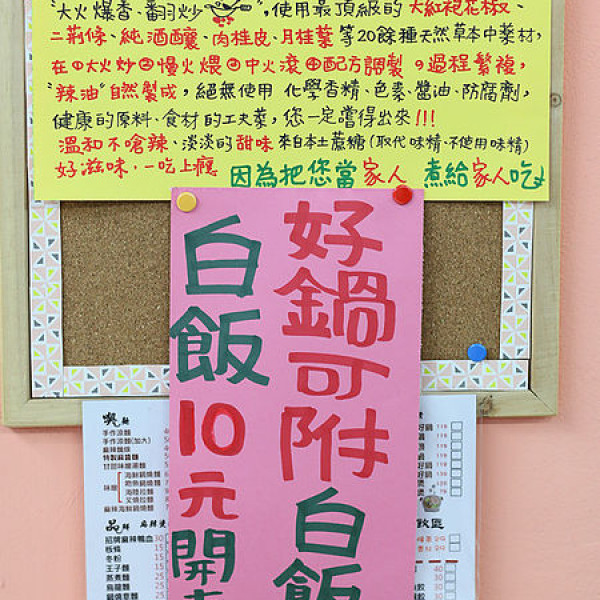 "大火爆香、翻炒",使用最頂級的 大紅袍花椒、
二荊條、純酒釀、肉桂皮、月桂葉 等20餘種天然草本中藥材,
在①大火炒②慢火煨③中火滾④配方調製,過程繁複,
"辣油"自然製成,絕無使用 化學香精、色素、醬油、防腐劑,
健康的原料、食材的工夫菜,您一定嚐得出來!!!
溫和不嗆辣、淡淡的甜味來自本土蔗糖(取代味精、不使用味精)
好滋味,一吃上癮 因為把您當家人 煮給家人吃
好鍋可附白飯
白飯10元開
手作涼麵
手作涼麵(加大)
麻辣麵條
特製麻醬麵
甘甜味噌湯麵
味噌
海鮮鍋燒麵
麻辣海鮮鍋燒麵
品鮮 麻辣
招牌麻辣鴨血 30
板條 15
冬粉 15
王子麵 15
蒸煮麵 25
烏龍麵 25
鍋燒意麵
好鍋 119
飲區